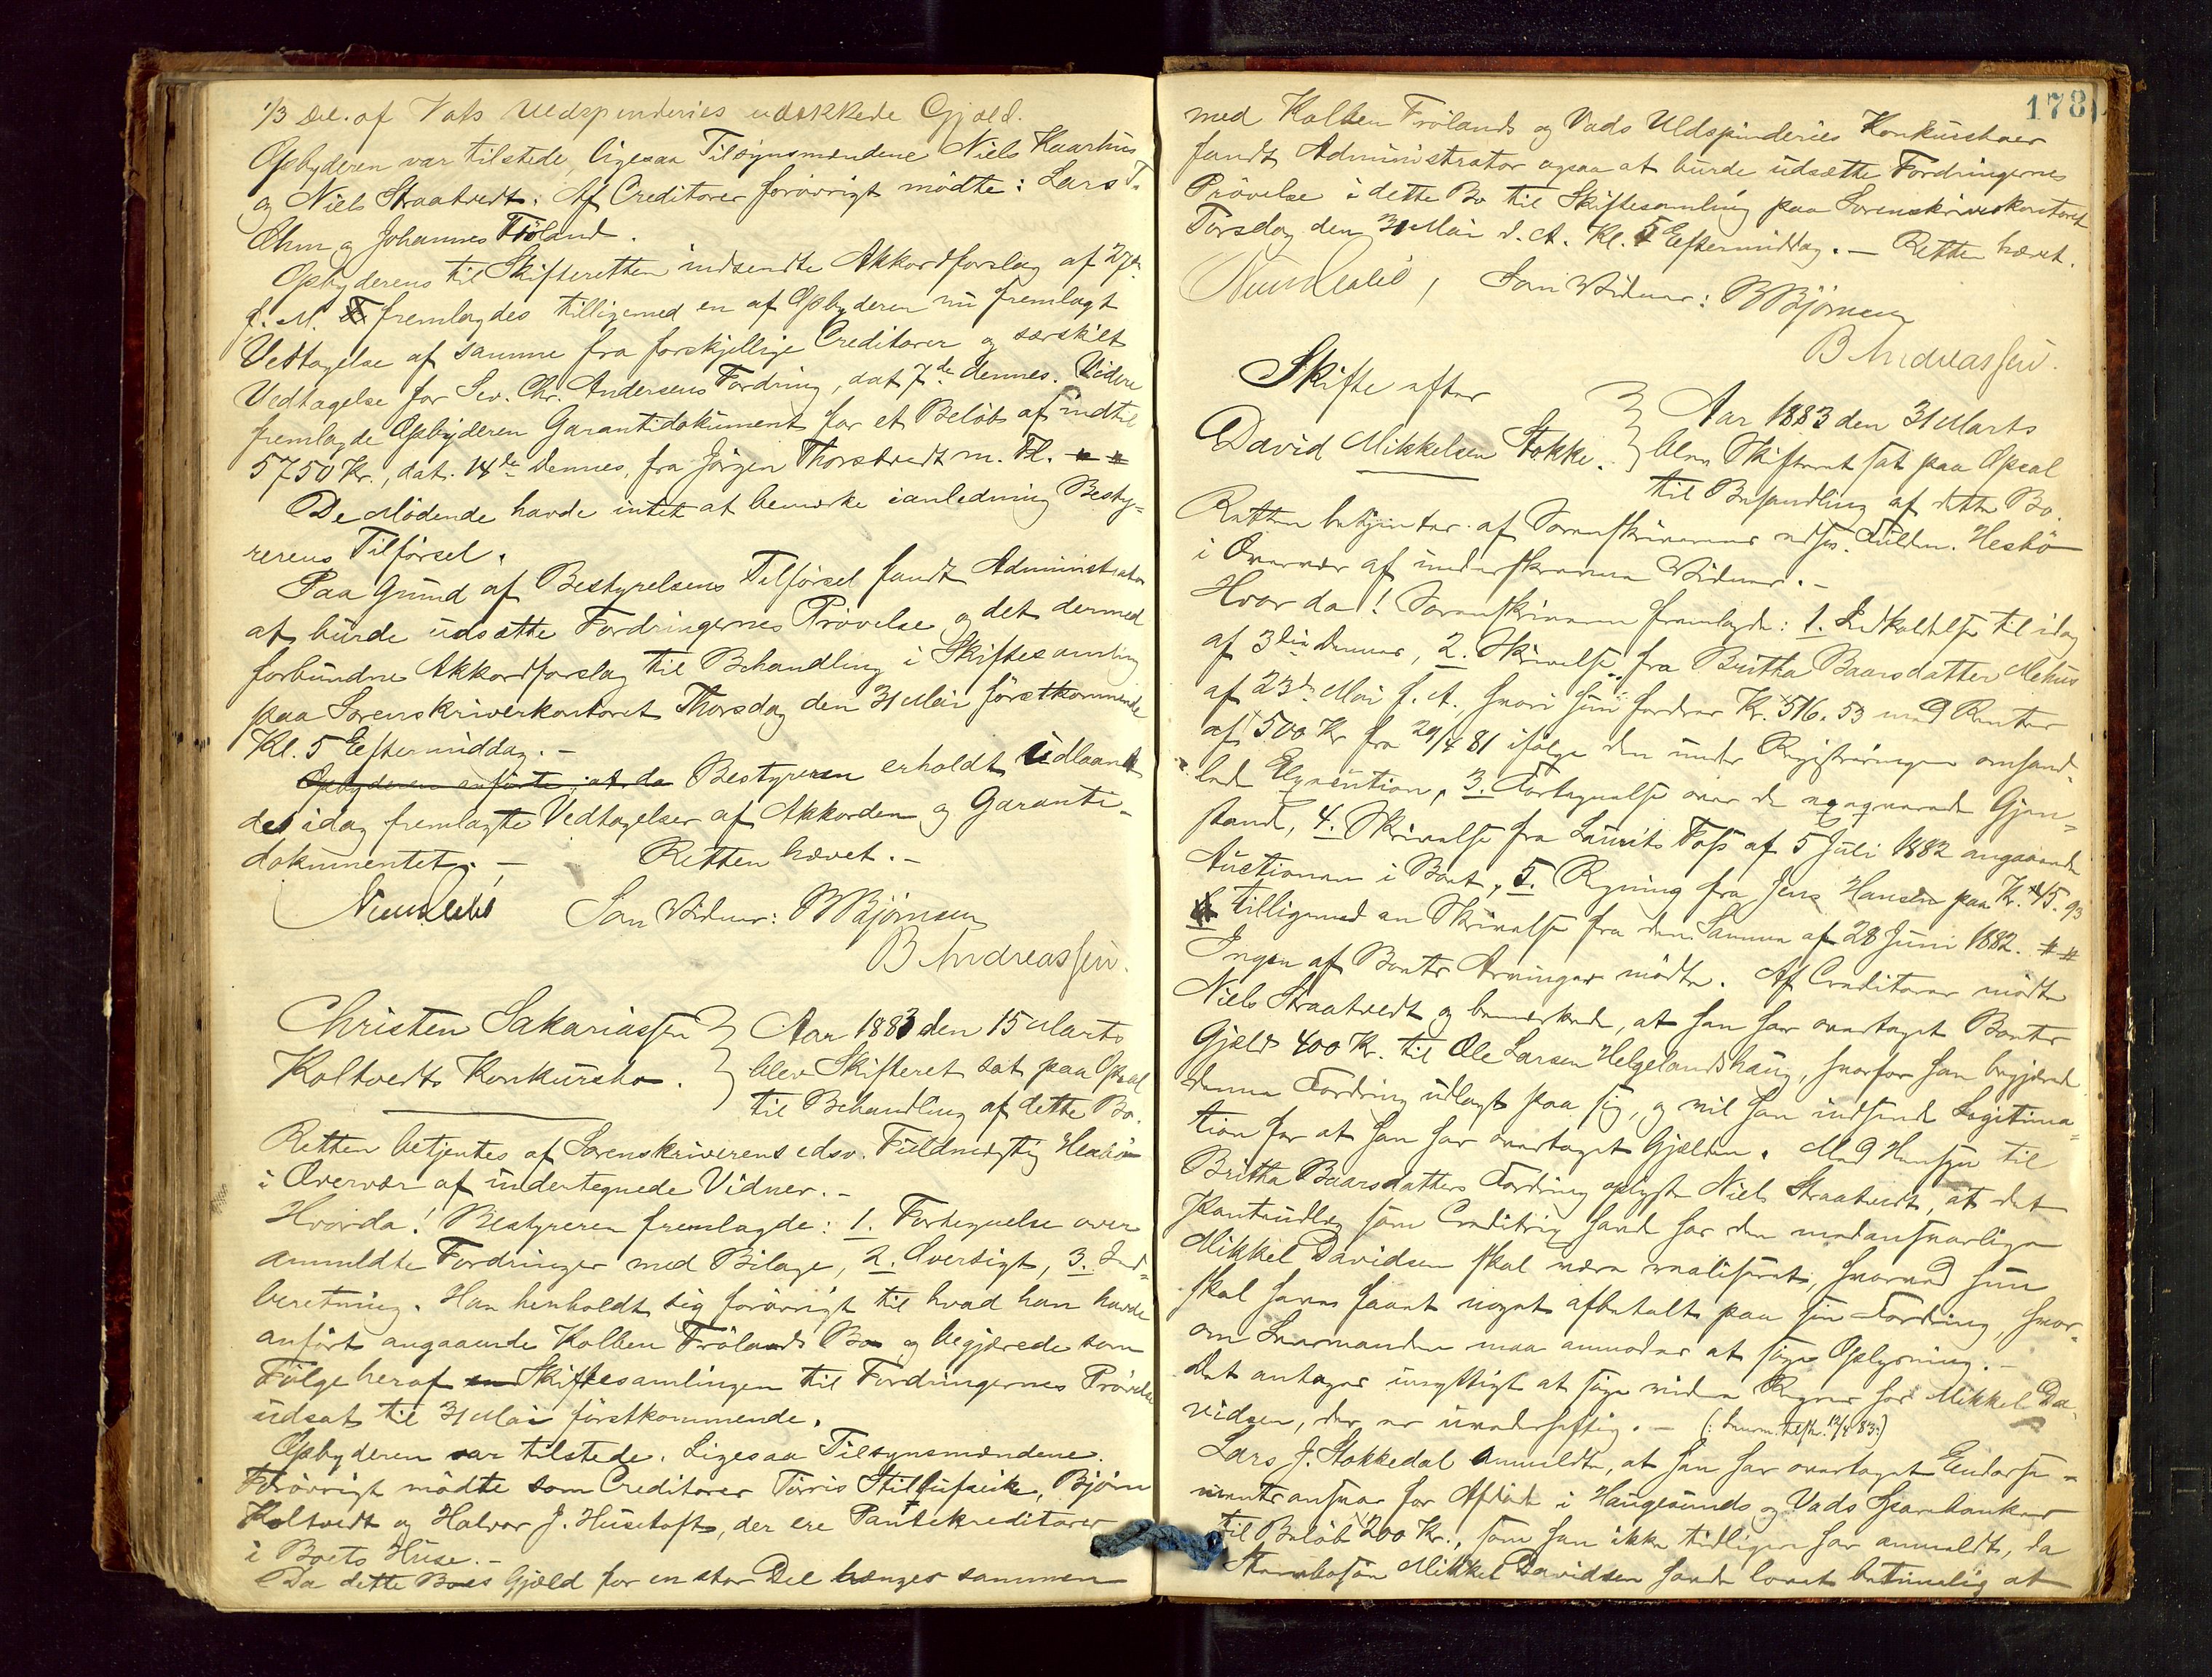 1/3 Del. af Vats Uldspinderies udækkede Gjæld.
Opbyderen var tilstede, ligesaa Tilsynsmændene Niels Kaarhus
og Niels Straatvedt. Af Creditorer forøvrigt mødte: Lars T.
Øhm og Johannes Frøland.
Opbyderens til Skifteretten indsendte Akkordforslag af 27de
f. M. fremlagdes tilligemed en af Opbyderen nu fremlagt
Vedtagelse af samme fra forskjellige Creditorer og særskilt
Vedtagelse for Sev. Chr. Andersens Fordring, dat 7de dennes. Videre
fremlagde Opbyderen Garantidokument for et Beløb af indtil
5750 Kr., dat. 14de dennes, fra Jörgen Thorstvedt m. Fl.
De Mödende havde intet at bemærke ianledning Besty-
rerens Tilförsel.
Paa Grund af Bestyrelsens Tilförsel fandt Administrator
at burde udsætte Fordringernes Prövelse og det dermed
forbundne Akkordforslag til Behandling i Skiftesamling
paa Sorenskriverkontoret Thorsdag den 31 Mai förstkommende
Kl. 5 Eftermiddag. -
Opbyderen anførte, at da Bestyreren erholdt udlaant
de idag fremlagte Vedtagelser af Akkorden og Garanti-
dokumentet. - Retten hævet. -
Som Vidner: B Bjørnsen
B Andreassen.
Christen Sakariassen } Aar 1883 den 15 Marts
Koltvedts Konkursbo. } blev Skifteret sat paa Opsal
til Behandling af dette Bo.
Retten betjentes af Sorenskriverens edsv. Fuldmægtig Hesbö
i Overvær af undertegnede Vidner. -
Hvorda! Bestyreren fremlagde: 1. Fortegnelse over
anmeldte Fordringer med Bilage, 2. Oversigt, 3. Ind-
beretning. Han henholdt sig forövrigt til hvad han havde
anfört angaaende Kolben Frölands Bo og begjærede som
Fölge heraf Skiftesamlingen til Fordringernes Prövelse
udsat til 31 Mai förstkommende.
Opbyderen var tilstede. Ligesaa Tilsynsmændene.
Forövrigt mödte som Creditorer Törris Stillufseik, Bjørn
Koltvedt og Halvor J. Husetoft, der ere Pantekreditorer
i Boets Huse. -
Da dette Boes Gjæld for en stor Del hænger sammen
178
med Kolben Frölands og Vads Uldspinderies Konkursboer
fandt Administrator ogsaa at burde udsætte Fordringernes
Prövelse i dette Bo til Skiftesamling paa Sorenskriverkontoret
Torsdag den 31 Mai d. A. Kl. 5 Eftermiddag. - Retten hævet.
Som Vidner: B Bjørnsen
B Andreassen.
Skifte efter } Aar 1883 den 31 Marts
David Mikkelsen Stokke. } blev Skifteret sat paa Opsal
til Behandling af dette Bo.
Retten betjentes af Sorenskriverens edsv. Fuldm. Hesbö
i Overvær af underskrevne Vidner. -
Hvor da! Sorenskriveren fremlagde: 1. Indkaldelse til idag
af 3die dennes, 2. Skrivelse fra Britha Baarsdatter Mehus
af 23de Mai f. A., hvori hun fordrer Kr. 516.53 med Renter
af 500 Kr fra 29/4 81 ifølge den under Registreringen omhand-
lede Execution, 3. Fortegnelse over de exeqverede Gjen-
stande, 4. Skrivelse fra Laurits Foss af 5 Juli 1882 angaaende
Auctionen i Boet, 5. Regning fra Jens Hansen paa Kr. 45.93
tilligemed en Skrivelse fra den Samme af 28 Juni 1882.
Ingen af Boets Arvinger mödte. Af Creditorer mödte
Niels Straatvedt og bemærkede, at han har overtaget Boets
Gjæld 400 Kr. til Ole Larsen Helgelandshaug, hvorfor han begjærede
denne Fordring udlagt paa sig, og vil han indsende Legitima-
tion for at han har overtaget Gjælden. Med Hensyn til
Britha Baarsdatters Fordring oplyste Niels Straatvedt, at det
Pantudlæg som Creditrix havde hos den medansvarlige
Mikkel Davidsen skal være realiseret, hvorved hun
skal have faaet noget afbetalt paa sin Fordring, hvor-
om Lensmanden maa anmodes at søge Oplysning. -
Det antages unyttigt at søge videre Regres hos Mikkel Da-
vidsen, der er uvederheftig. - (: Lensm. tilskr. 12/4 83 :)
Lars J. Stokkedal anmeldte, at han har overtaget Endorse-
mentsansvar for Afdøde i Haugesunds og Vads Sparebanker
til Beløb 200 Kr., som han ikke tidligere har anmeldt, da
Stervbosön Mikkel Davidsen havde lovet betimelig at